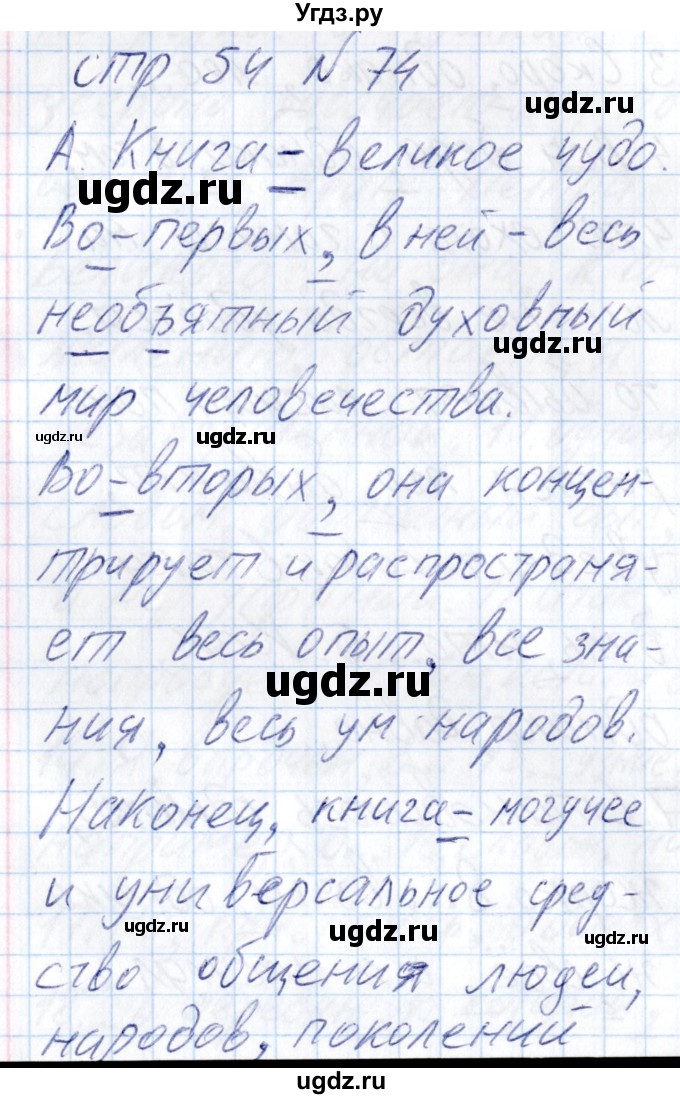 Угдз.ру
стр 54 N 74
А. Книга – великое чудо.
ugdz.ru
Во-первых, в ней – весь
необъятный духовный
ugdz.ru
мир человечества.
ugdz.ru ugdz.ru
Во-вторых, она концен-
трирует и распространя-
ет весь опыт, все зна-
ugdz.ru
ния, весь ум народов.
Наконец, книга – могучее
и универсальное сред-
ugdz.ru ugdz.ru ugdz.ru
ство общения людей,
народов, поколений
ugdz.ru